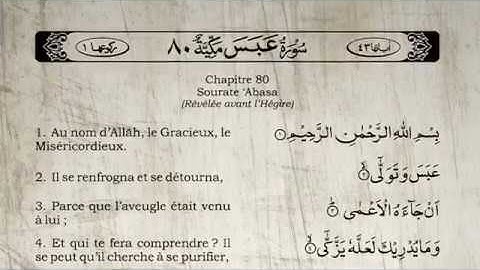 اٰیاتها ٤٣ سُوْرَةُ عَبَسَ مَكِّيَّةٌ ٨٠ رکوعها ١
Chapitre 80
Sourate ‘Abasa
(Révélée avant l’Hégire)
1. Au nom d’Allāh, le Gracieux, le
Miséricordieux.
بِسْمِ اللهِ الرَّحْمٰنِ الرَّحِيْمِ ①
2. Il se renfrogna et se détourna,
عَبَسَ وَتَوَلّٰٓى ②
3. Parce que l’aveugle était venu
à lui ;
اَنْ جَآءَهُ الْاَعْمٰى ③
4. Et qui te fera comprendre ? Il
se peut qu’il cherche à se purifier,
وَمَا يُدْرِيْكَ لَعَلَّهٗ يَزَّكّٰٓى ④